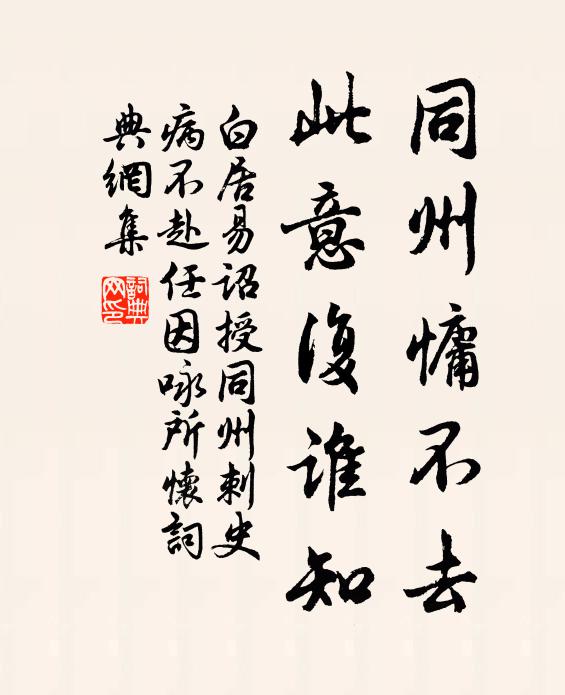 同州慵不去
此意復誰知
白居易詔授同州刺史
病不赴任因咏所懷詞
典網集
詞典
网印